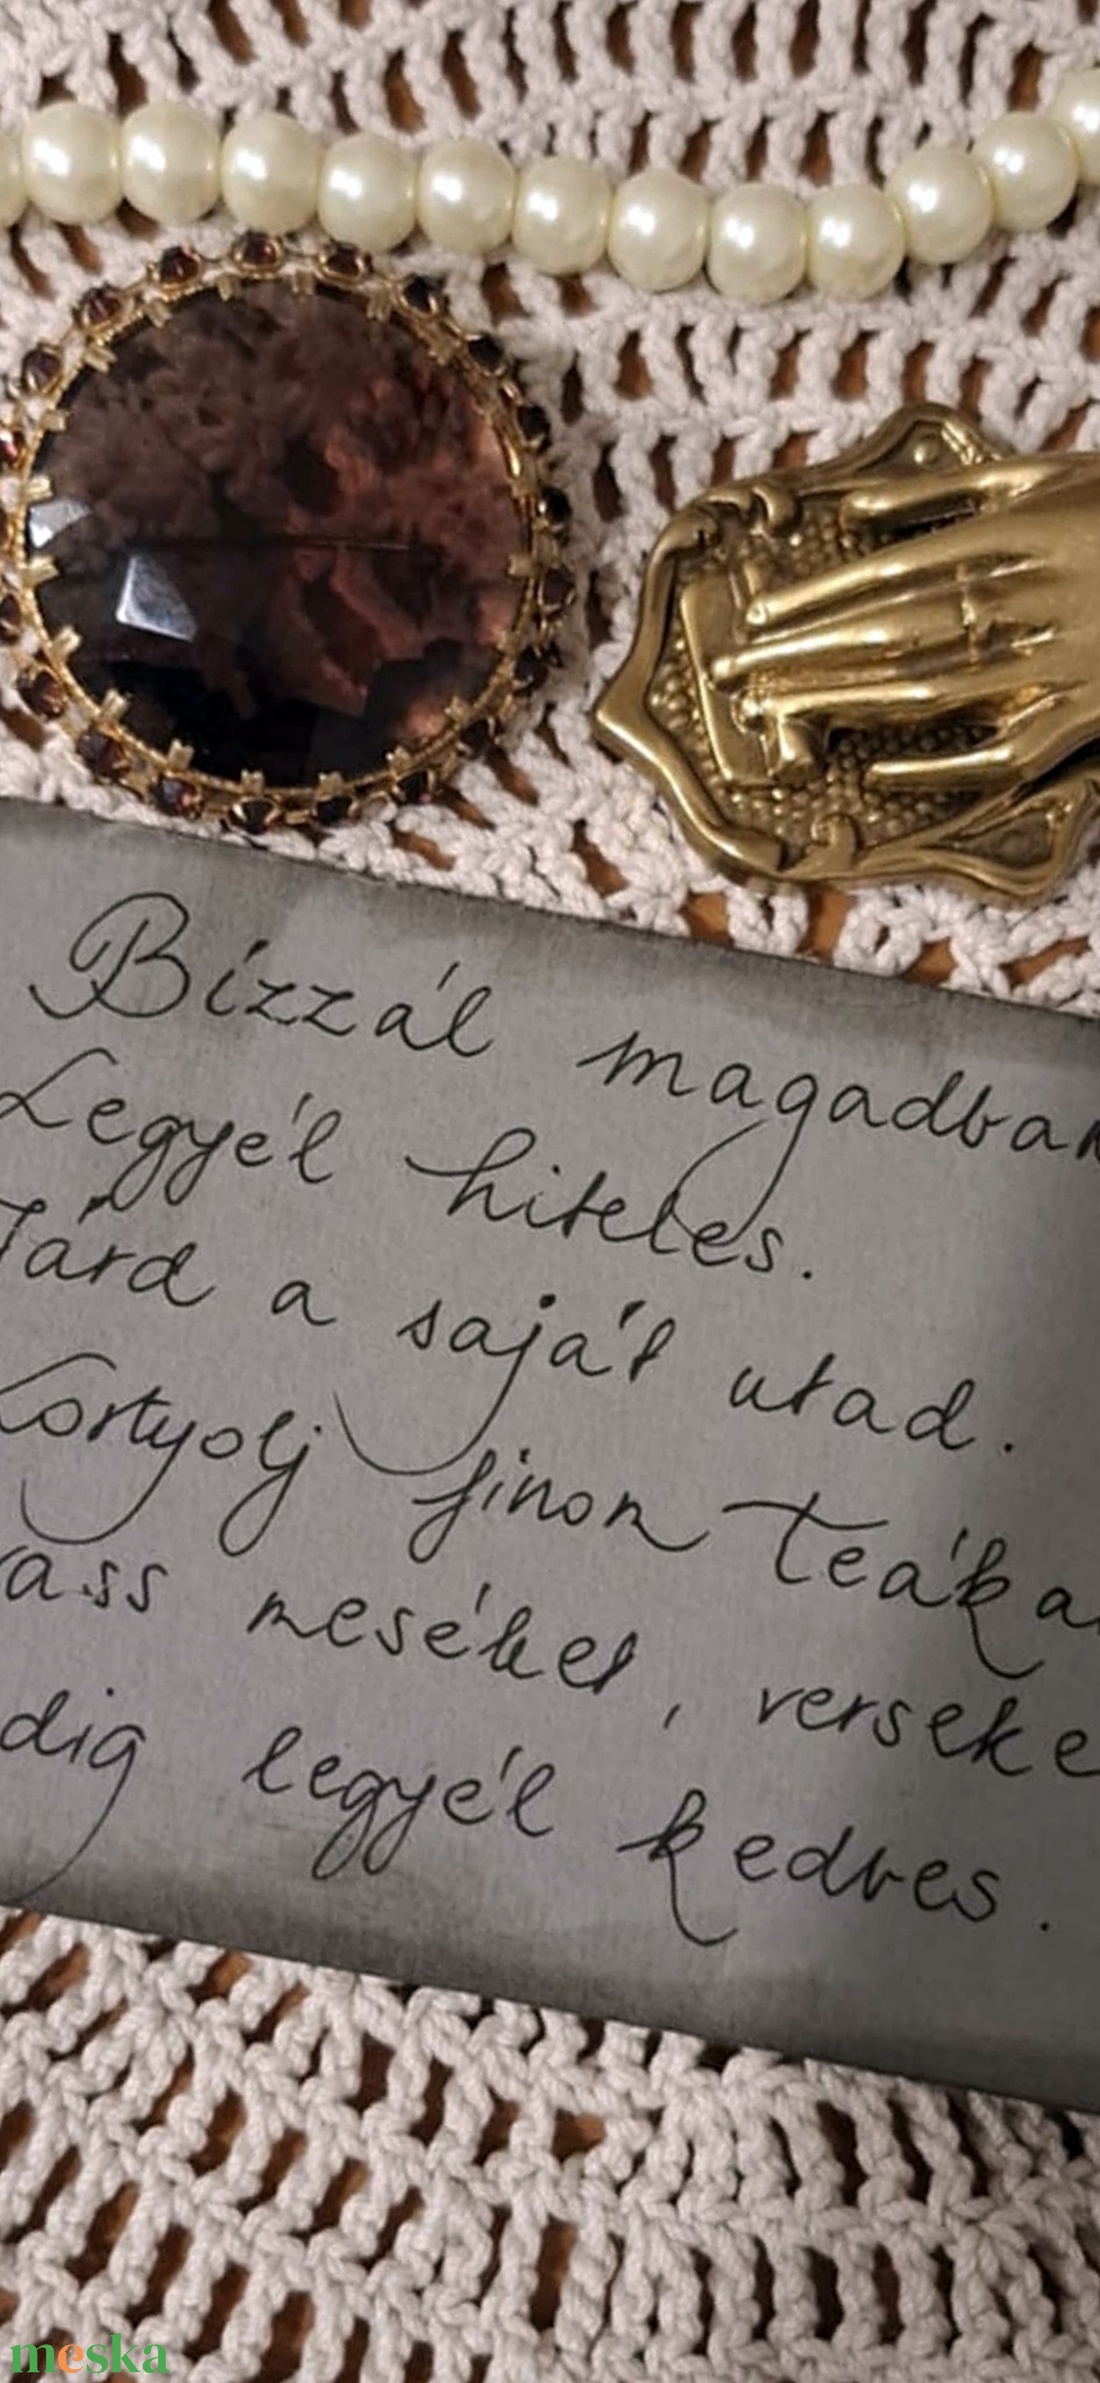 Bízzál magadban
Legyél hiteles.
Járd a saját utad.
Kortyolj finom teáka
ass meséket, verseke
dig legyél kedves.
meska